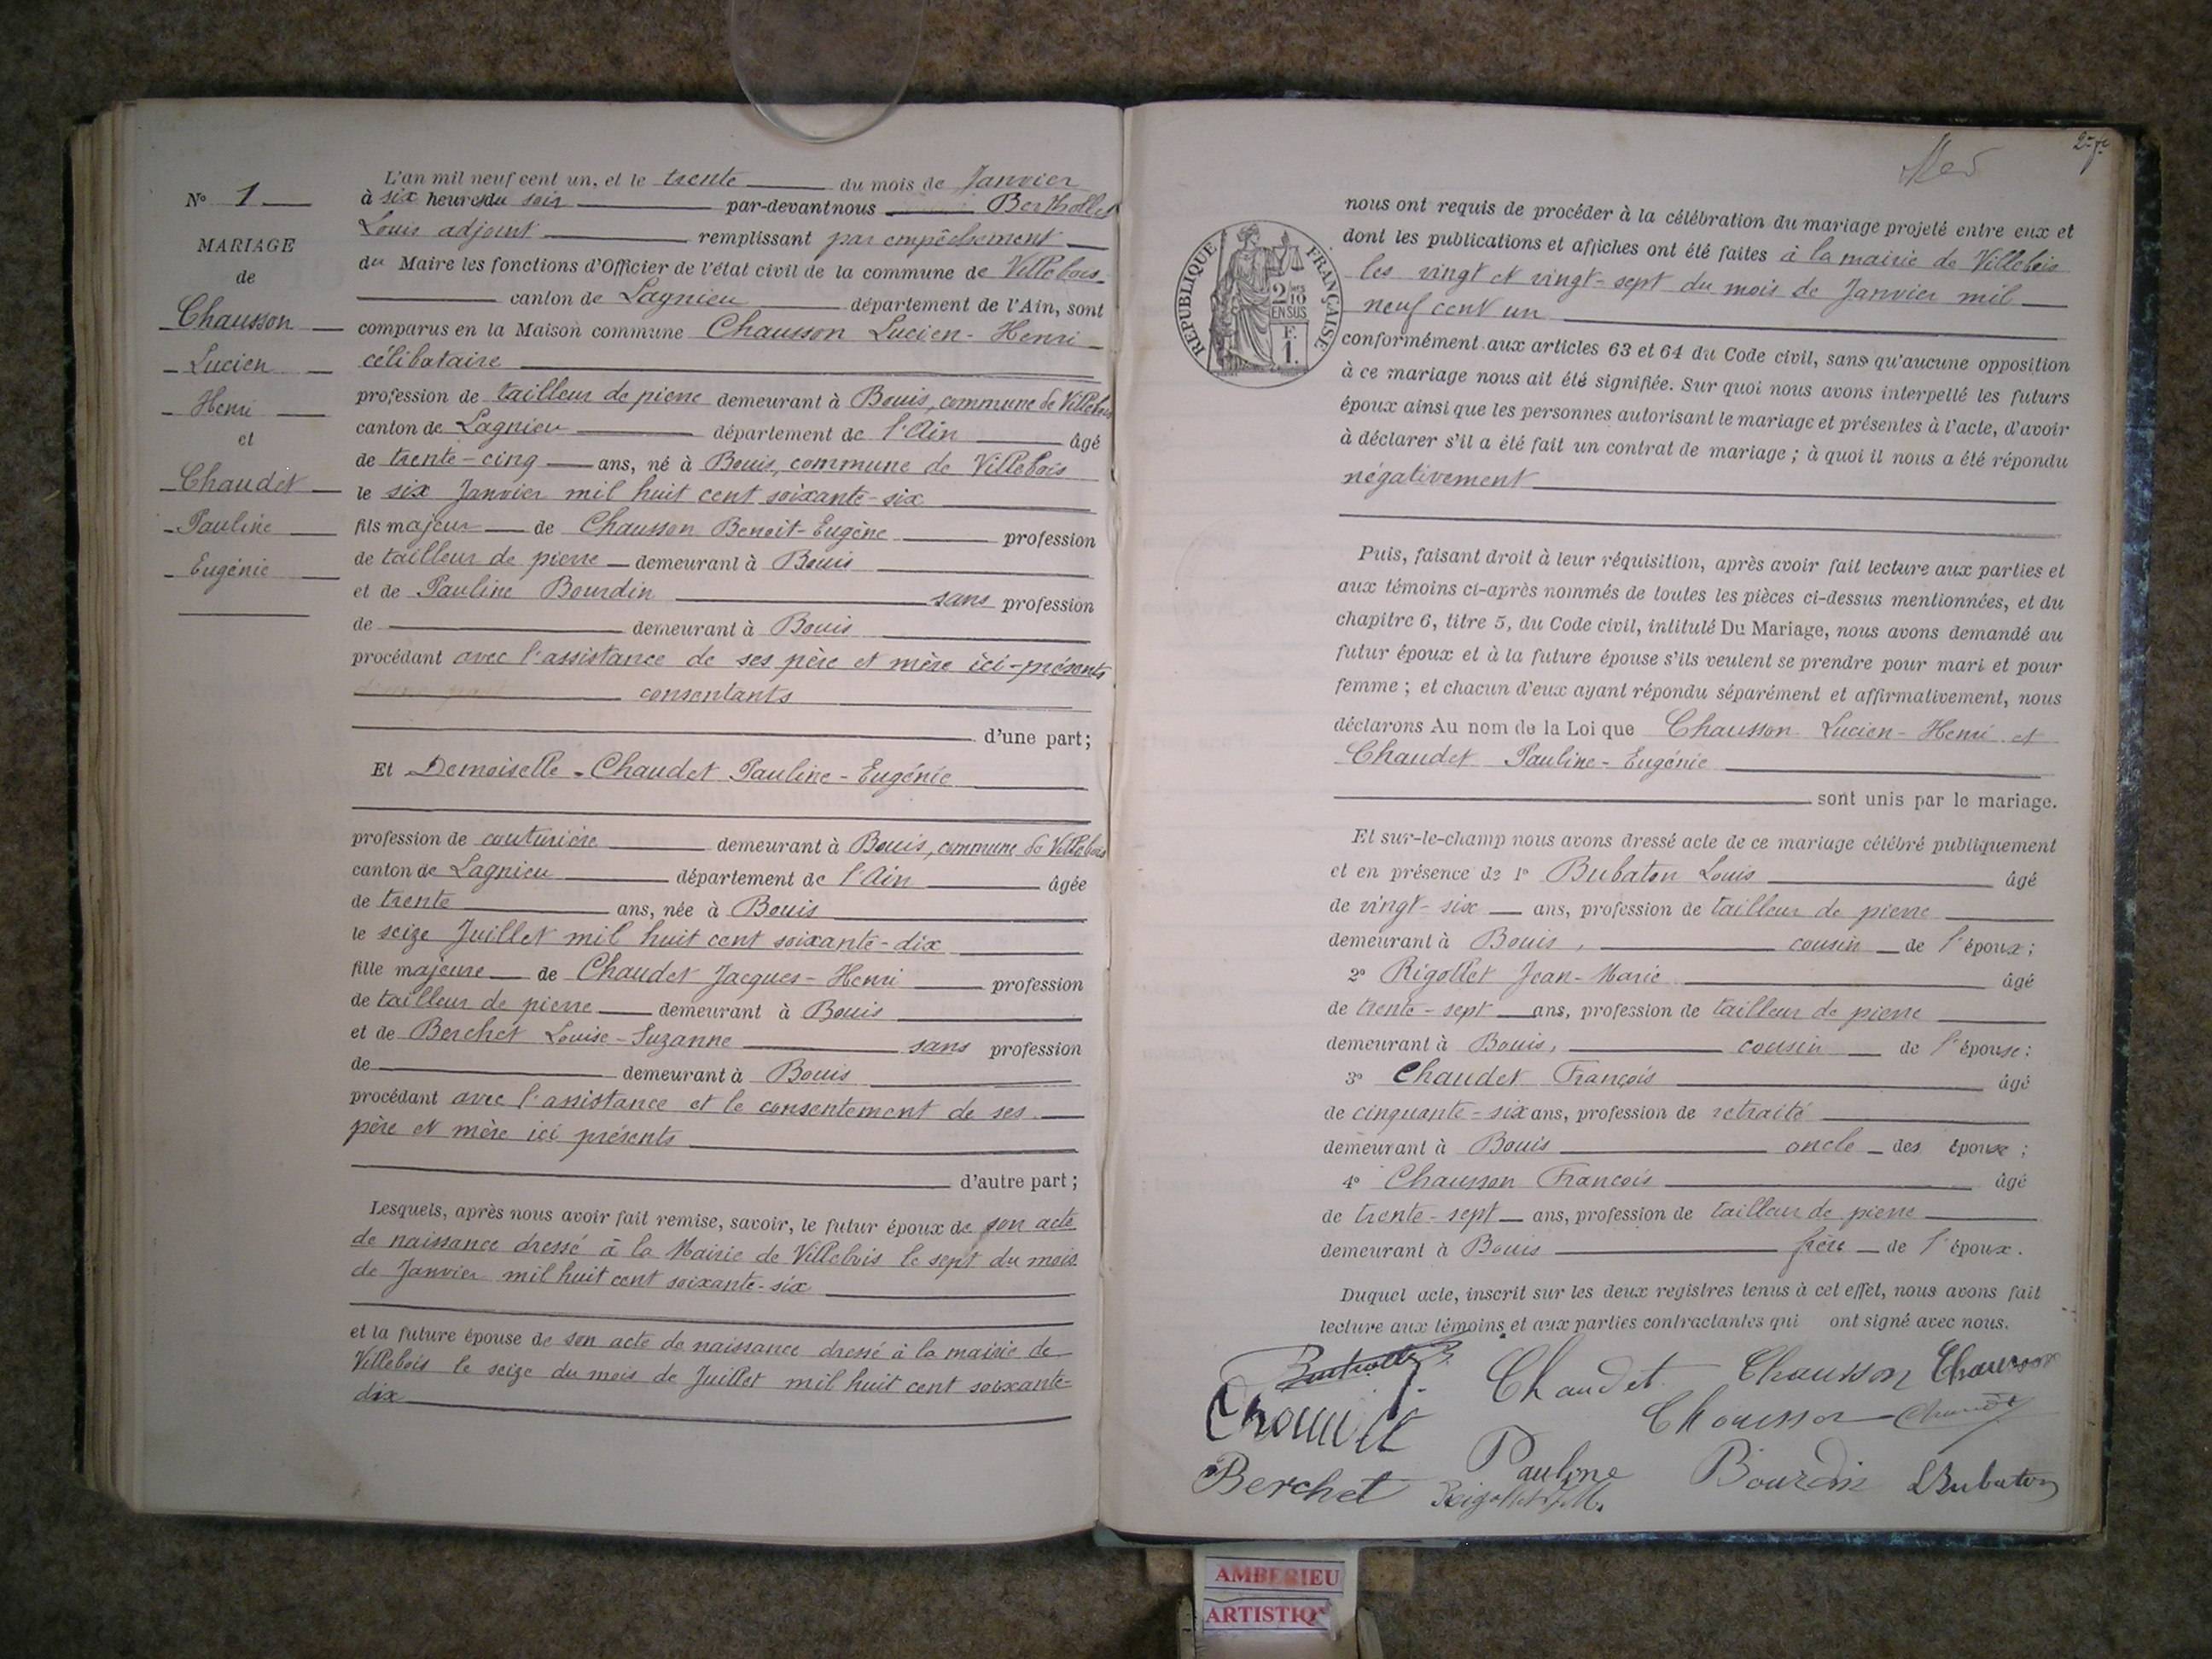 N° 1
MARIAGE
de
Chausson
Lucien
Henri
et
Chaudet
Pauline
Eugénie
L'an mil neuf cent un, et le trente du mois de Janvier
à six heures du soir par-devant nous Berthollet
Louis adjoint remplissant par empêchement
du Maire les fonctions d'Officier de l'état civil de la commune de Villebois
canton de Lagnieu département de l'Ain, sont
comparus en la Maison commune Chausson Lucien-Henri
célibataire
profession de tailleur de pierre demeurant à Bouis, commune de Villebois
canton de Lagnieu département de l'Ain âgé
de trente-cinq ans, né à Bouis, commune de Villebois
le six Janvier mil huit cent soixante-six
fils majeur de Chausson Benoit-Eugène profession
de tailleur de pierre demeurant à Bouis
et de Pauline Bourdin sans profession
de demeurant à Bouis
procédant avec l'assistance de ses père et mère ici-présents
consentants
d'une part;
Et Demoiselle Chaudet Pauline-Eugénie
profession de couturière demeurant à Bouis, commune de Villebois
canton de Lagnieu département de l'Ain âgée
de trente ans, née à Bouis
le seize Juillet mil huit cent soixante-dix
fille majeure de Chaudet Jacques-Henri profession
de tailleur de pierre demeurant à Bouis
et de Berchet Louise-Suzanne sans profession
de demeurant à Bouis
procédant avec l'assistance et le consentement de ses
père et mère ici présents
d'autre part;
Lesquels, après nous avoir fait remise, savoir, le futur époux de son acte
de naissance dressé à la Mairie de Villebois le sept du mois
de Janvier mil huit cent soixante-six
et la future épouse de son acte de naissance dressé à la mairie de
Villebois le seize du mois de Juillet mil huit cent soixante-
dix
RÉPUBLIQUE FRANÇAISE
2/10
EN SUS
F.
1.
nous ont requis de procéder à la célébration du mariage projeté entre eux et
dont les publications et affiches ont été faites à la mairie de Villebois
les vingt et vingt-sept du mois de Janvier mil
neuf cent un
conformément aux articles 63 et 64 du Code civil, sans qu'aucune opposition
à ce mariage nous ait été signifiée. Sur quoi nous avons interpellé les futurs
époux ainsi que les personnes autorisant le mariage et présentes à l'acte, d'avoir
à déclarer s'il a été fait un contrat de mariage; à quoi il nous a été répondu
négativement
Puis, faisant droit à leur réquisition, après avoir fait lecture aux parties et
aux témoins ci-après nommés de toutes les pièces ci-dessus mentionnées, et du
chapitre 6, titre 5, du Code civil, intitulé Du Mariage, nous avons demandé au
futur époux et à la future épouse s'ils veulent se prendre pour mari et pour
femme; et chacun d'eux ayant répondu séparément et affirmativement, nous
déclarons Au nom de la Loi que Chausson Lucien-Henri et
Chaudet Pauline-Eugénie
sont unis par le mariage.
Et sur-le-champ nous avons dressé acte de ce mariage célébré publiquement
et en présence de 1° Bubaton Louis âgé
de vingt-six ans, profession de tailleur de pierre
demeurant à Bouis, cousin de l'époux;
2° Rigollet Jean-Marie âgé
de trente-sept ans, profession de tailleur de pierre
demeurant à Bouis, cousin de l'épouse:
3° Chaudet François âgé
de cinquante-six ans, profession de retraité
demeurant à Bouis oncle des époux;
4° Chausson François âgé
de trente-sept ans, profession de tailleur de pierre
demeurant à Bouis frère de l'époux.
Duquel acte, inscrit sur les deux registres tenus à cet effet, nous avons fait
lecture aux témoins et aux parties contractantes qui ont signé avec nous.
Chaudet Chausson Chausson
Chausson
Berchet Pauline Bourdin LBubaton
Rigollet J.M.
AMBERIEU
ARTISTIQ